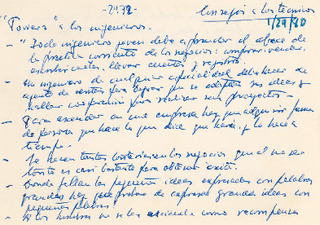 -2132-
Consejos a los técnicos
1/29/80
"Towers" a los ingenieros.
- "Todo ingeniero joven debe aprender el abecé de
la práctica corriente de los negocios: comprar, vender,
escribir cartas, llevar cuentas y registros.
- Un ingeniero de cualquier especialidad debe hacer de
agente de ventas para lograr que se acepten sus ideas y
hallar cooperación para realizar sus proyectos.
- Para ascender en una empresa hay que adquirir fama
de persona que hace lo que dice que hará, y lo hace a
tiempo.
- Se hacen tantas tonterías en los negocios que el no ser
tonto es casi bastante para obtener éxito.
- Donde fallan las pequeñas ideas expresadas con palabras
grandes, hay que tratar de expresar grandes ideas con
pequeñas palabras.
- A los hombres no se les asciende como recompensa